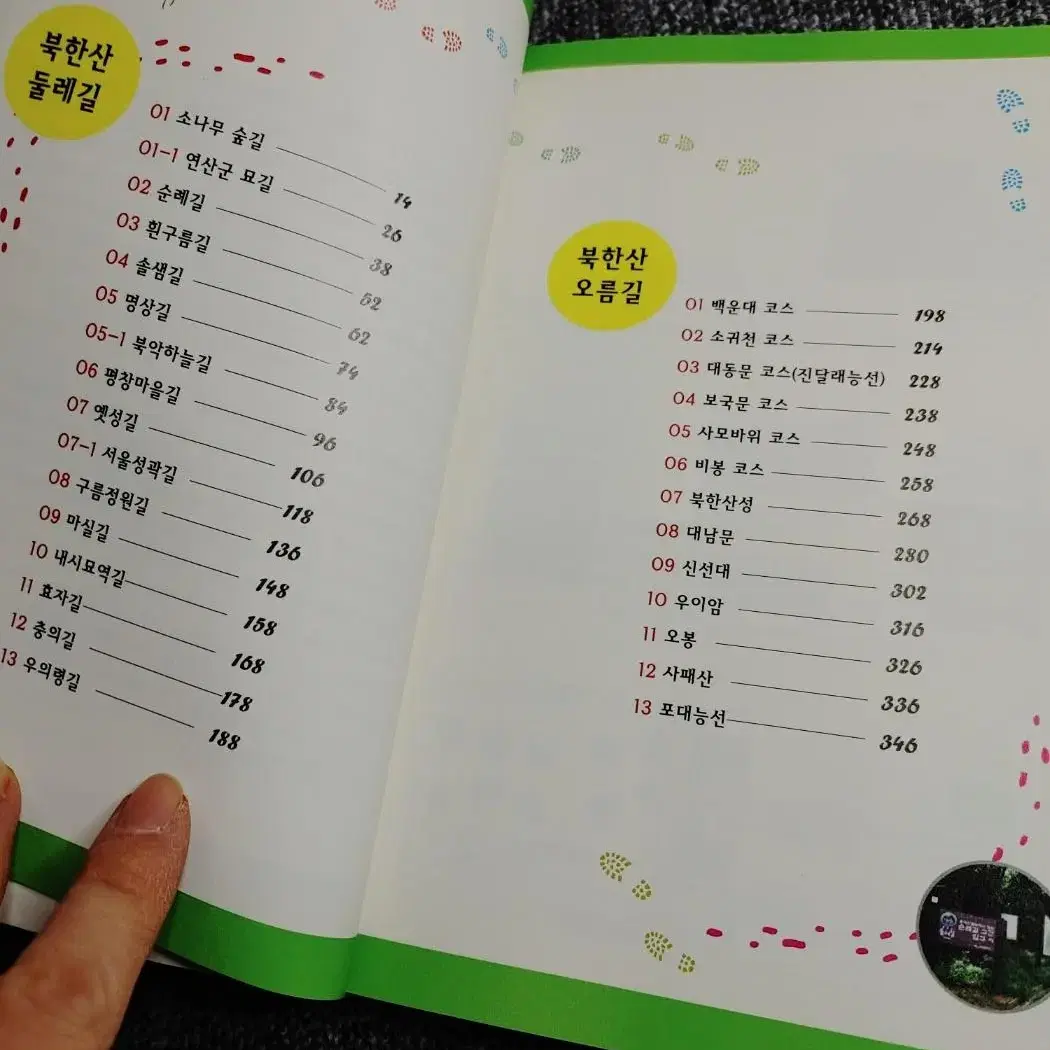 북한산
둘레길
01 소나무 숲길 14
01-1 연산군 묘길 26
02 순례길 38
03 흰구름길 52
04 솔샘길 62
05 명상길 74
05-1 북악하늘길 84
06 평창마을길 96
07 옛성길 106
07-1 서울성곽길 118
08 구름정원길 136
09 마실길 148
10 내시묘역길 158
11 효자길 168
12 충의길 178
13 우의령길 188
북한산
오름길
01 백운대 코스 198
02 소귀천 코스 214
03 대동문 코스(진달래능선) 228
04 보국문 코스 238
05 사모바위 코스 248
06 비봉 코스 258
07 북한산성 268
08 대남문 280
09 신선대 302
10 우이암 316
11 오봉 326
12 사패산 336
13 포대능선 346